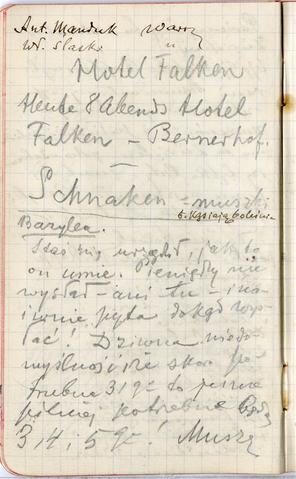 Ant. Manduk Warsz
Wł. Slaski
Hotel Falken
Heute 8 Abends Hotel
Falken – Bernerhof.
–
Schnaken – muszki
b. kąsają boleśnie
Bazylea.
Staś się urządził, jak to
on umie. Pieniędzy nie
wysłał – ani tu – i na-
iwnie pyta dokąd wys-
łać! Dziwna niedo-
myślność że skoro po-
trzebne 3/9 to
pilniej potrzebne będą
3, 4 i 5 9! Muszą